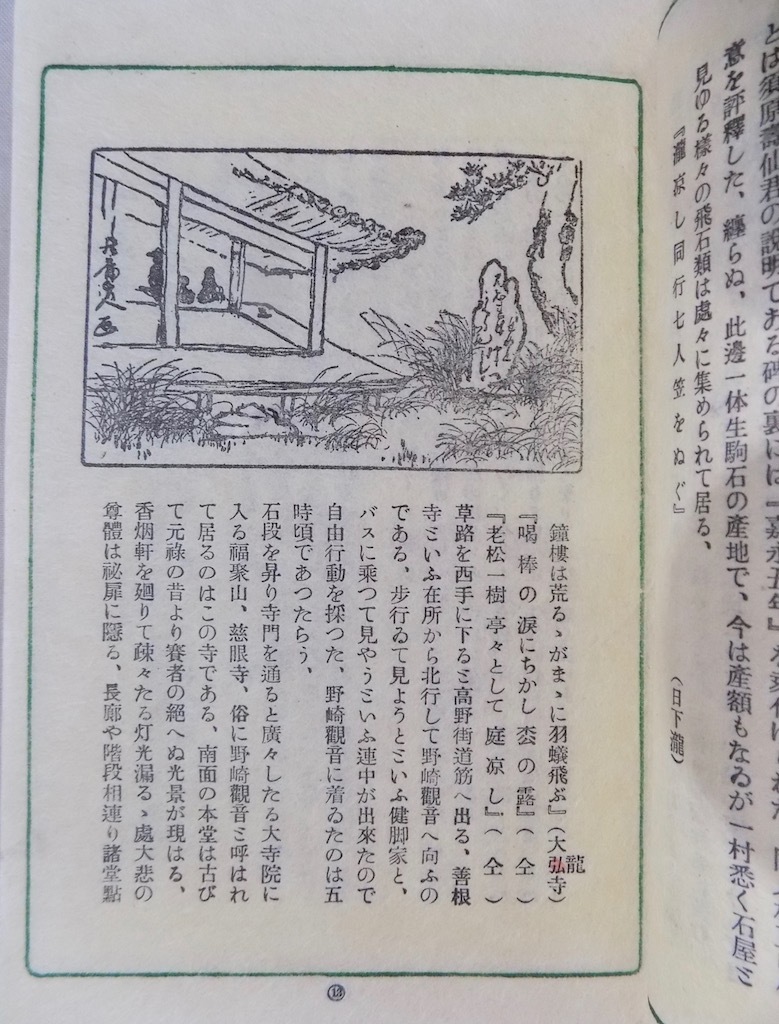 とは須原壽仙君の說明である碑の裏には『嘉永五年』
意を評釋した、纏らぬ、此邊一体生駒石の產地で、今は產額もなるが一村悉く石屋ミ
見ゆる樣々の飛石類は處々に集められて居る、
『瀧凉し同行七人笠をぬぐ』 (日下瀧)
鐘樓は荒るゝがまゝに羽蟻飛ぶ』(大弘寺)
龍
『喝棒の淚にちかし の露』(仝)
『老松一樹亭々として庭凉し』(仝)
草路を西手に下るミ高野街道筋へ出る、善根
寺ミいふ在所から北行して野崎觀音へ向ふの
である、步行ゐて見ようとミいふ健脚家と、
バスに乘つて見やうミいふ連中が出來たので
自由行動を採つた、野崎觀音に着ゐたのは五
時頃であつたらう、
石段を昇り寺門を通ると廣々したる大寺院に
入る福聚山、慈眼寺、俗に野崎觀音ミ呼はれ
て居るのはこの寺である、南面の本堂は古び
て元祿の昔より賽者の絕へぬ光景が現はる、
香烟軒を廻りて疎々たる灯光漏るゝ處大悲の
尊體は祕扉に隱る、長廊や階段相連り諸堂點
⑬